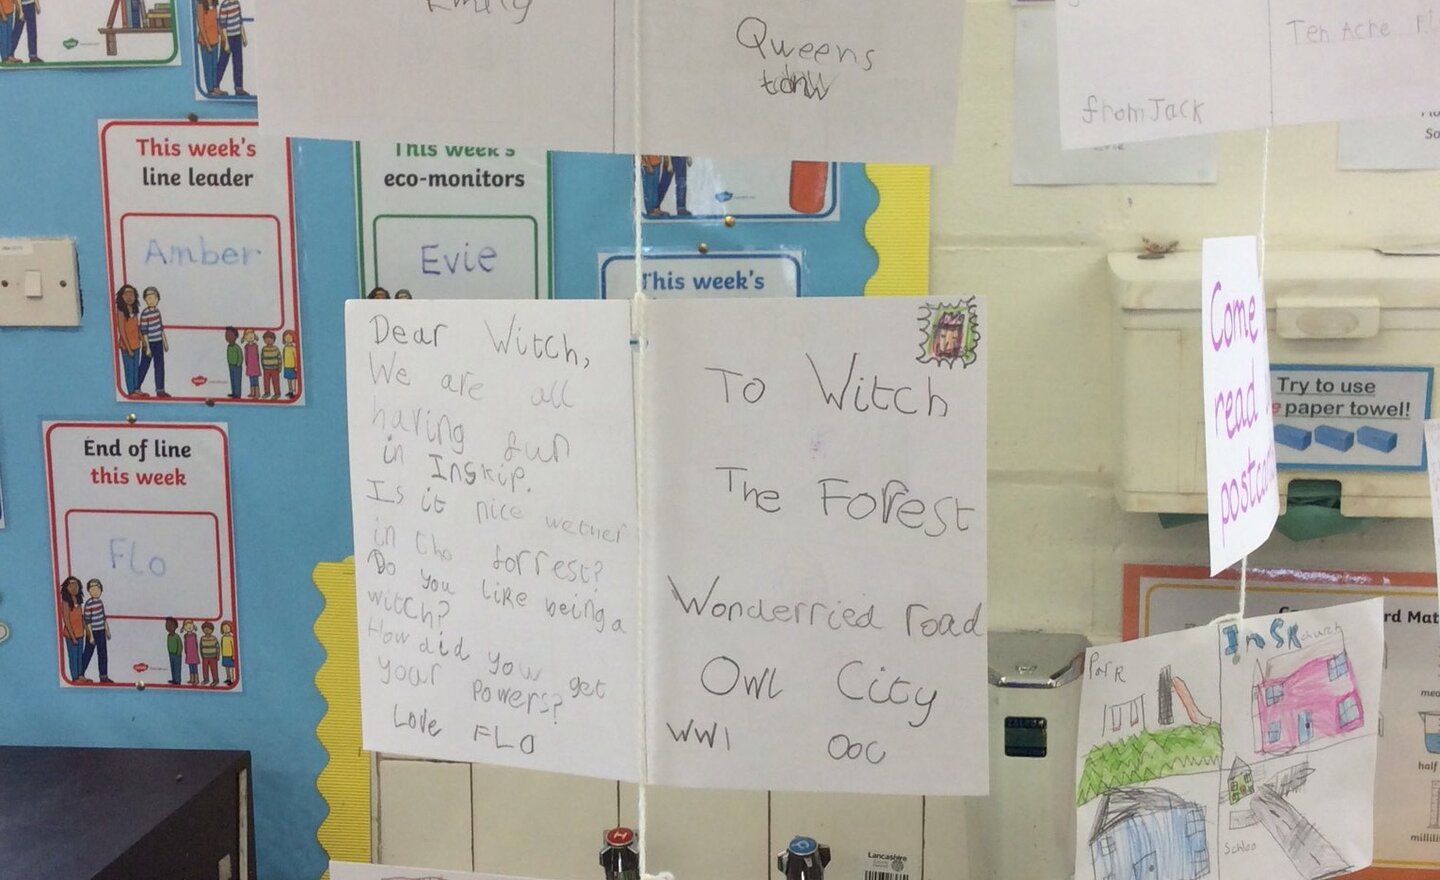 Emily
Queens
town
from Jack
Ten Acre
This week's
line leader
Amber
This week's
eco-monitors
Evie
This week's
End of line
this week
Flo
Dear Witch,
We are all
having fun
in Inskip.
Is it nice wether
in the forrest?
Do you like being a
witch?
How did you get
your Powers?
Love FLO
To Witch
The Forest
Wonderried road
Owl City
WW1 OoC
Come
read
Try to use
paper towel!
Park
InSk
church
Schoo
rd Mat
half
millili
Lancashire